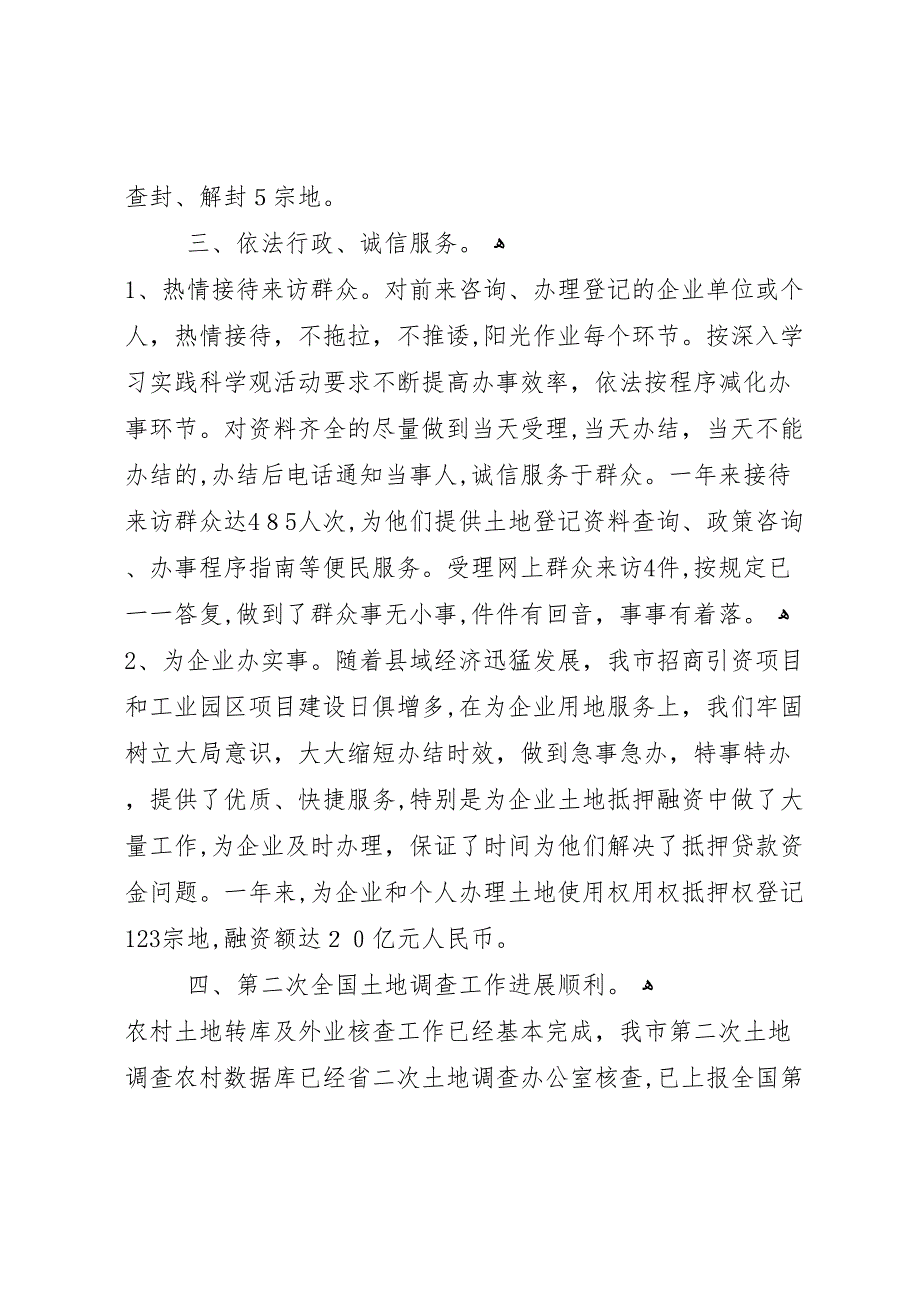 查封、解封５宗地。
三、依法行政、诚信服务。 ﻫ
1、热情接待来访群众。对前来咨询、办理登记的企业单位或个
人，热情接待，不拖拉，不推诿,阳光作业每个环节。按深入学
习实践科学观活动要求不断提高办事效率，依法按程序减化办
事环节。对资料齐全的尽量做到当天受理,当天办结，当天不能
办结的,办结后电话通知当事人,诚信服务于群众。一年来接待
来访群众达4８5人次,为他们提供土地登记资料查询、政策咨询
、办事程序指南等便民服务。受理网上群众来访4件,按规定已
一一答复,做到了群众事无小事,件件有回音，事事有着落。 ﻫ
2、为企业办实事。随着县域经济迅猛发展，我市招商引资项目
和工业园区项目建设日俱增多,在为企业用地服务上，我们牢固
树立大局意识，大大缩短办结时效，做到急事急办，特事特办
，提供了优质、快捷服务,特别是为企业土地抵押融资中做了大
量工作,为企业及时办理，保证了时间为他们解决了抵押贷款资
金问题。一年来,为企业和个人办理土地使用权用权抵押权登记
123宗地,融资额达２０亿元人民币。
四、第二次全国土地调查工作进展顺利。 ﻫ
农村土地转库及外业核查工作已经基本完成，我市第二次土地
调查农村数据库已经省二次土地调查办公室核查,已上报全国第